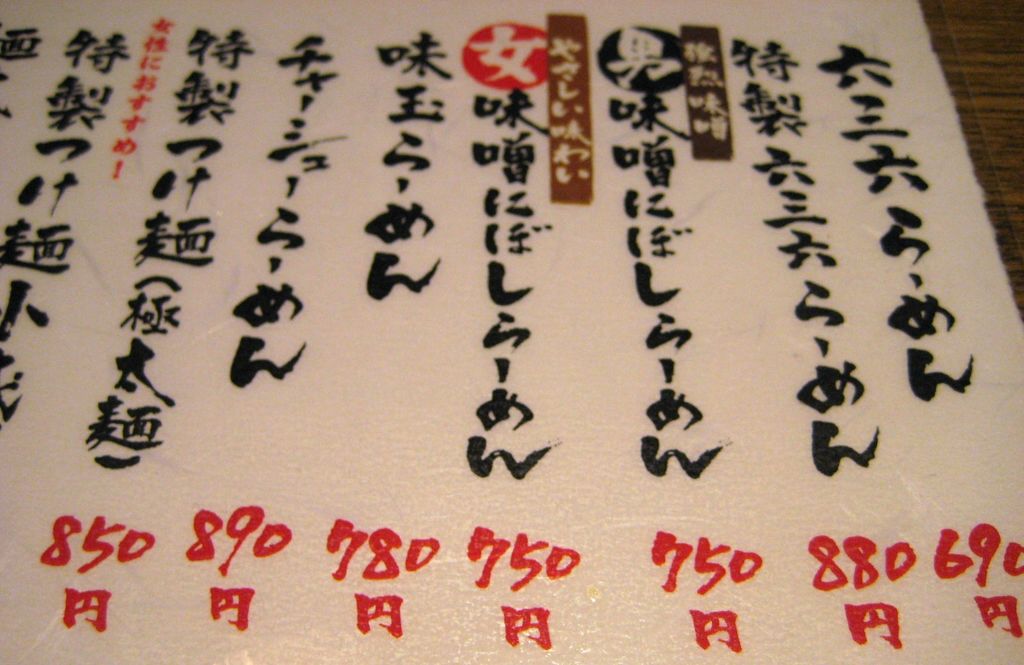 六三六らーめん
690円
特製六三六らーめん
880円
強烈味噌
男味噌にぼしらーめん
750円
やさしい味わい
女味噌にぼしらーめん
750円
味玉らーめん
780円
チャーシューらーめん
890円
特製つけ麺(極太麺)
850円
女性におすすめ!
特製つけ麺小